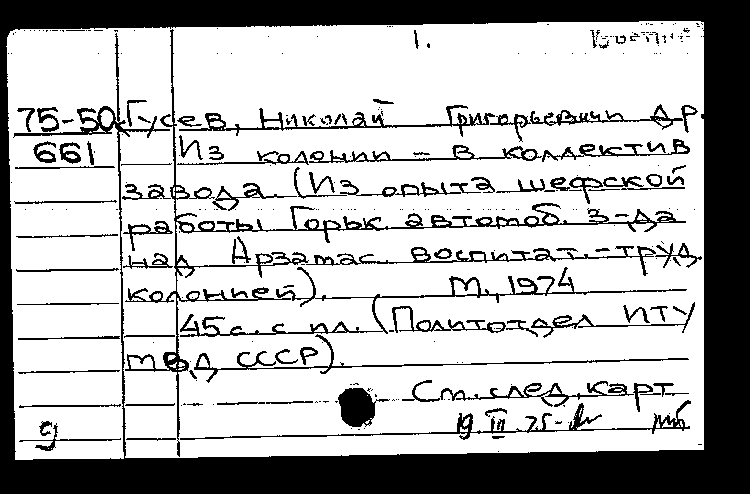 1.
75-50 Гусев, Николай Григорьевич и др.
661 Из колонии – в коллектив
завода. (Из опыта шефской
работы Горьк. автомоб. з-да
над Арзамас. воспитат.-труд.
колонией). М., 1974
45 с. с ил. (Политотдел ИТУ
МВД СССР).
См. след. карт
9 19.III.75-